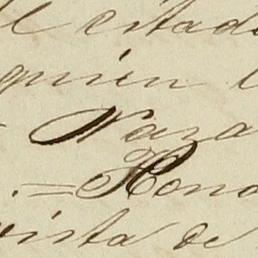 l citad
quien l
Naza
.= Hono
vista de